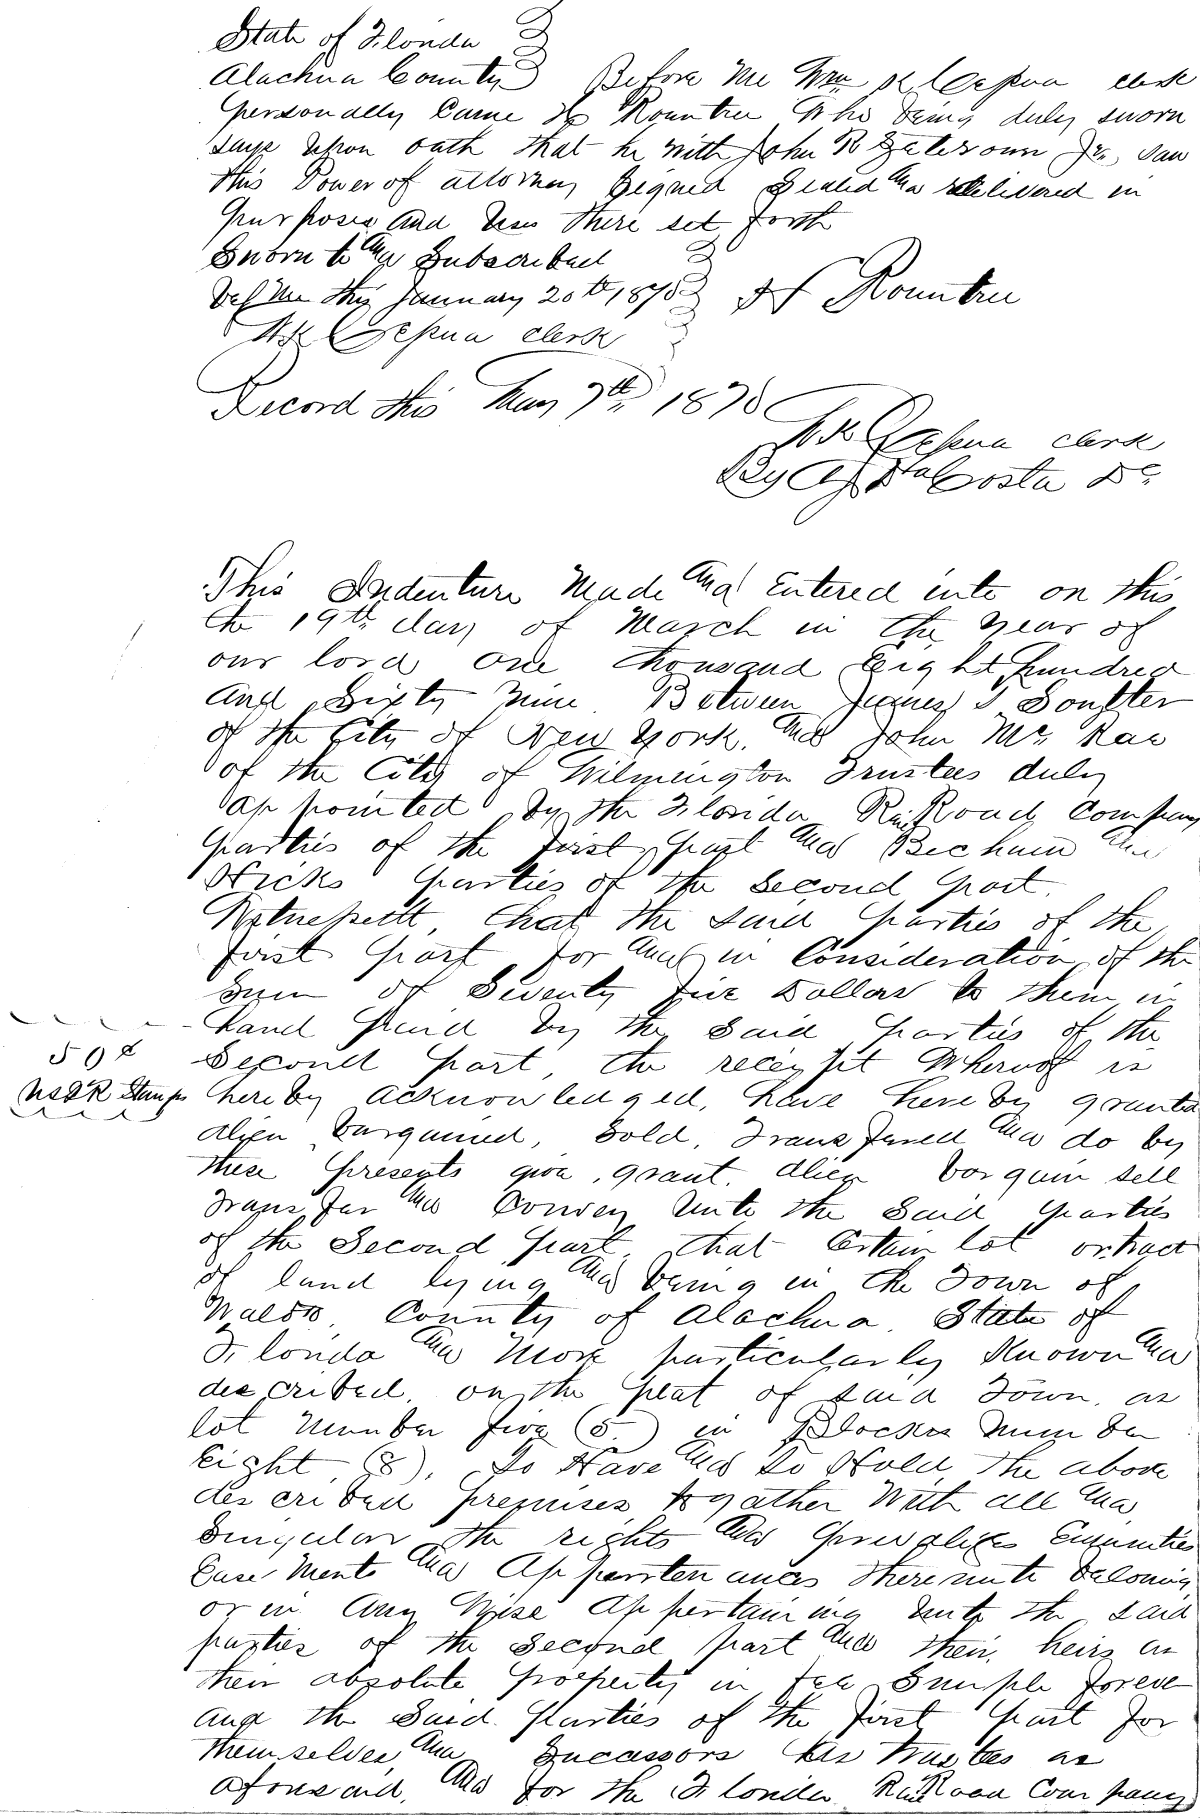 State of Florida
Alachua County Before Me Wm K Cessna clerk
personally Came H Rountree Who being duly sworn
says upon oath that he with John R Jr, saw
this Power of attorney Signed Sealed and delivered in
purposes and uses there set forth
Sworn to and Subscribed
bef Me this January 20th 1870 H Rountree
W K Cessna clerk
Record this May 7th, 1870
W K Cessna clerk
By A J Da Costa D C
This Indenture Made and Entered into on this
the 19th day of March in the Year of
our lord one thousand Eight hundred
and Sixty Nine Between James T Soutter
of the City of New York, and John Mc Rae
of the City of Wilmington Trustees duly
appointed by the Florida Rail Road Company
parties of the first part and Becham and
Hicks parties of the Second part.
Witnesseth, that the said parties of the
first part for and in Consideration of the
Sum of Seventy five Dollars to them in
hand paid by the said parties of the
50¢
Second part, the receipt Whereof is
U S I R Stamps
hereby acknowledged, have hereby granted
alien, bargained, Sold, Transfered and do by
these presents give, grant, alien bargain sell
Transfer and Convey Unto the Said parties
of the Second part, that certain lot or tract
of land lying and being in the Town of
Waldo, County of Alachua, State of
Florida and More particularly Known and
described, on the plat of said Town, as
lot Number five (5) in Block Number
Eight (8), To Have and to Hold, the above
described premises together With all and
Singular the rights and Emunities
Ease Ments and Appurtenances thereunto belonging
or in any Wise Appertaining unto the said
parties of the Second part and their heirs as
their absolute property in fee Simple foreve
and the Said parties of the first part for
themselves and Sucassors as trustees as
aforesaid, and for the Florida Rail Road Company